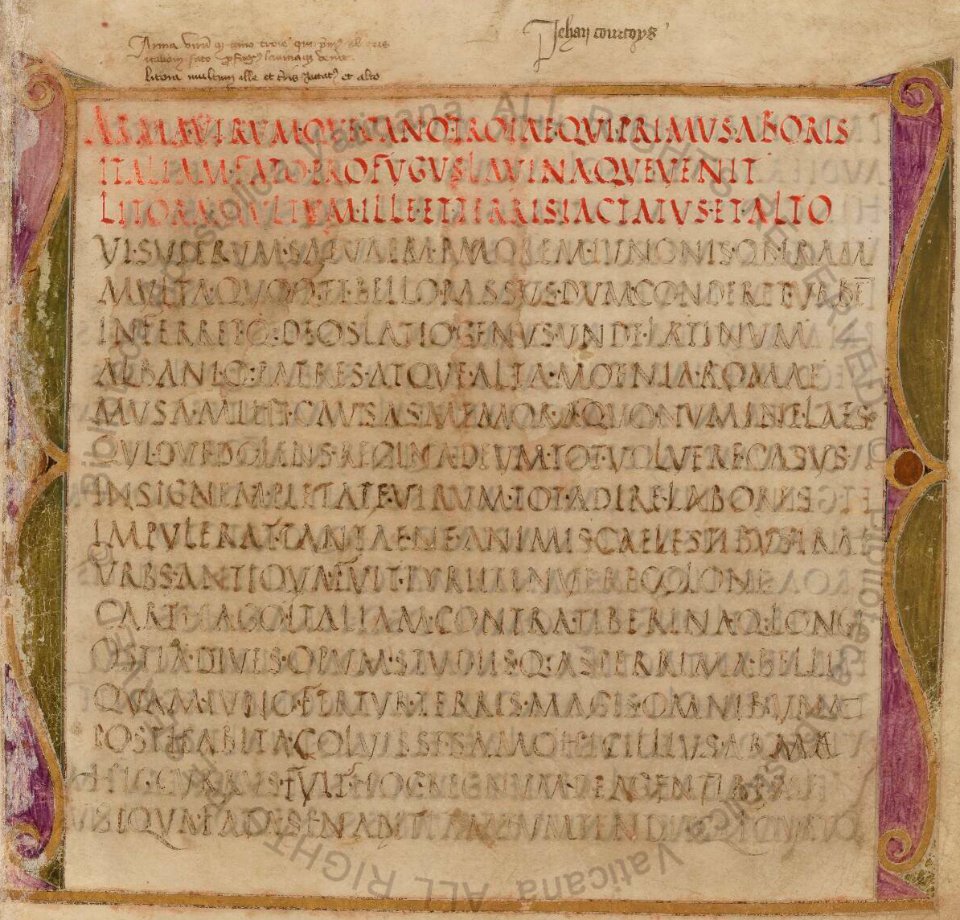 Arma virū q cano troie qui prim' ab oris
italiam fato profug' lavinaq venit
litora multum ille et terris iactat' et alto
Jehan courtoys
ARMA·VIRVM·QVE·CANO·TROIAE·QVI·PRIMVS·AB·ORIS
ITALIAM·FATO·PROFVGVS·LAVINAQVE·VENIT
LITORA·MVLTVM·ILLE·ET·TERRIS·IACTATVS·ET·ALTO
VI·SVPERVM·SAEVAE·MEMOREM·IVNONIS·OB
MVLTA·QVOQ·ET·BELLO·PASSVS·DVM·CONDERET·VRBĒ
INFERRETQ·DEOS·LATIO·GENVS·VNDE·LATINVM
ALBANIQ·PATRES·ATQVE·ALTA·MOENIA·ROMAE
MVSA·MIHI·CAVSAS·MEMORA·QVO·NVMINE·LAES
QVIDVE·DOLENS·REGINA·DEVM·TOT·VOLVERE·CASVS
INSIGNEM·PIETATE·VIRVM·TOT·ADIRE·LABORES
IMPVLERIT·TANTAENE·ANIMIS·CAELESTIBVS·IRAE
VRBS·ANTIQVA·FVIT·TYRII·TENVERE·COLONI
CARTHAGO·ITALIAM·CONTRA·TIBERINAQ·LONGE
OSTIA·DIVES·OPVM·STVDIISQ·ASPERRIMA·BELLI
QVAM·IVNO·FERTVR·TERRIS·MAGIS·OMNIBVS
POSTHABITA·COLVISSE·SAMO·HIC·ILLIVS·ARMA
HIC·CVRRVS·FVIT·HOC·REGNVM·DEA·GENTIBVS
SIQVA·FATA·SINANT